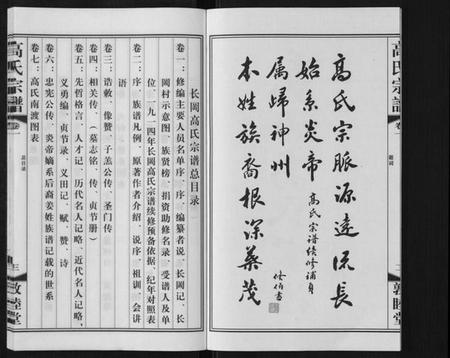 高氏宗譜
卷一
題詞
二
敦睦堂
高氏宗脈源遠流長
始系炎帝
高氏宗谱续修補貞
属歸神州
本姓族裔根深葉茂
长岡高氏宗谱总目录
卷一：修编主要人员名单、序、序、编纂者说、长岡记、长
冈村示意图、族贤榜、捐资助修名录、受谱人及单
位、一九一四年长岡高氏宗谱续修预备依据、纪年对照表
卷二：序、族谱凡例、原著作者介绍、说序、祖训、会讲
语
卷三：诰敕、像赞、子羔公传、圣门传
卷四：相关传、（墓志铭、传、贞节册）
卷五：先哲格言、人才记、历代名人记略、近代名人记略，
义勇编、贞节录、义田记、赋、赞、诗
卷六：忠宪公传、炎帝嫡系后裔姜姓族谱记载的世系
卷七：高氏南渡图表
高氏宗譜
卷一
總目录
三
敦睦堂